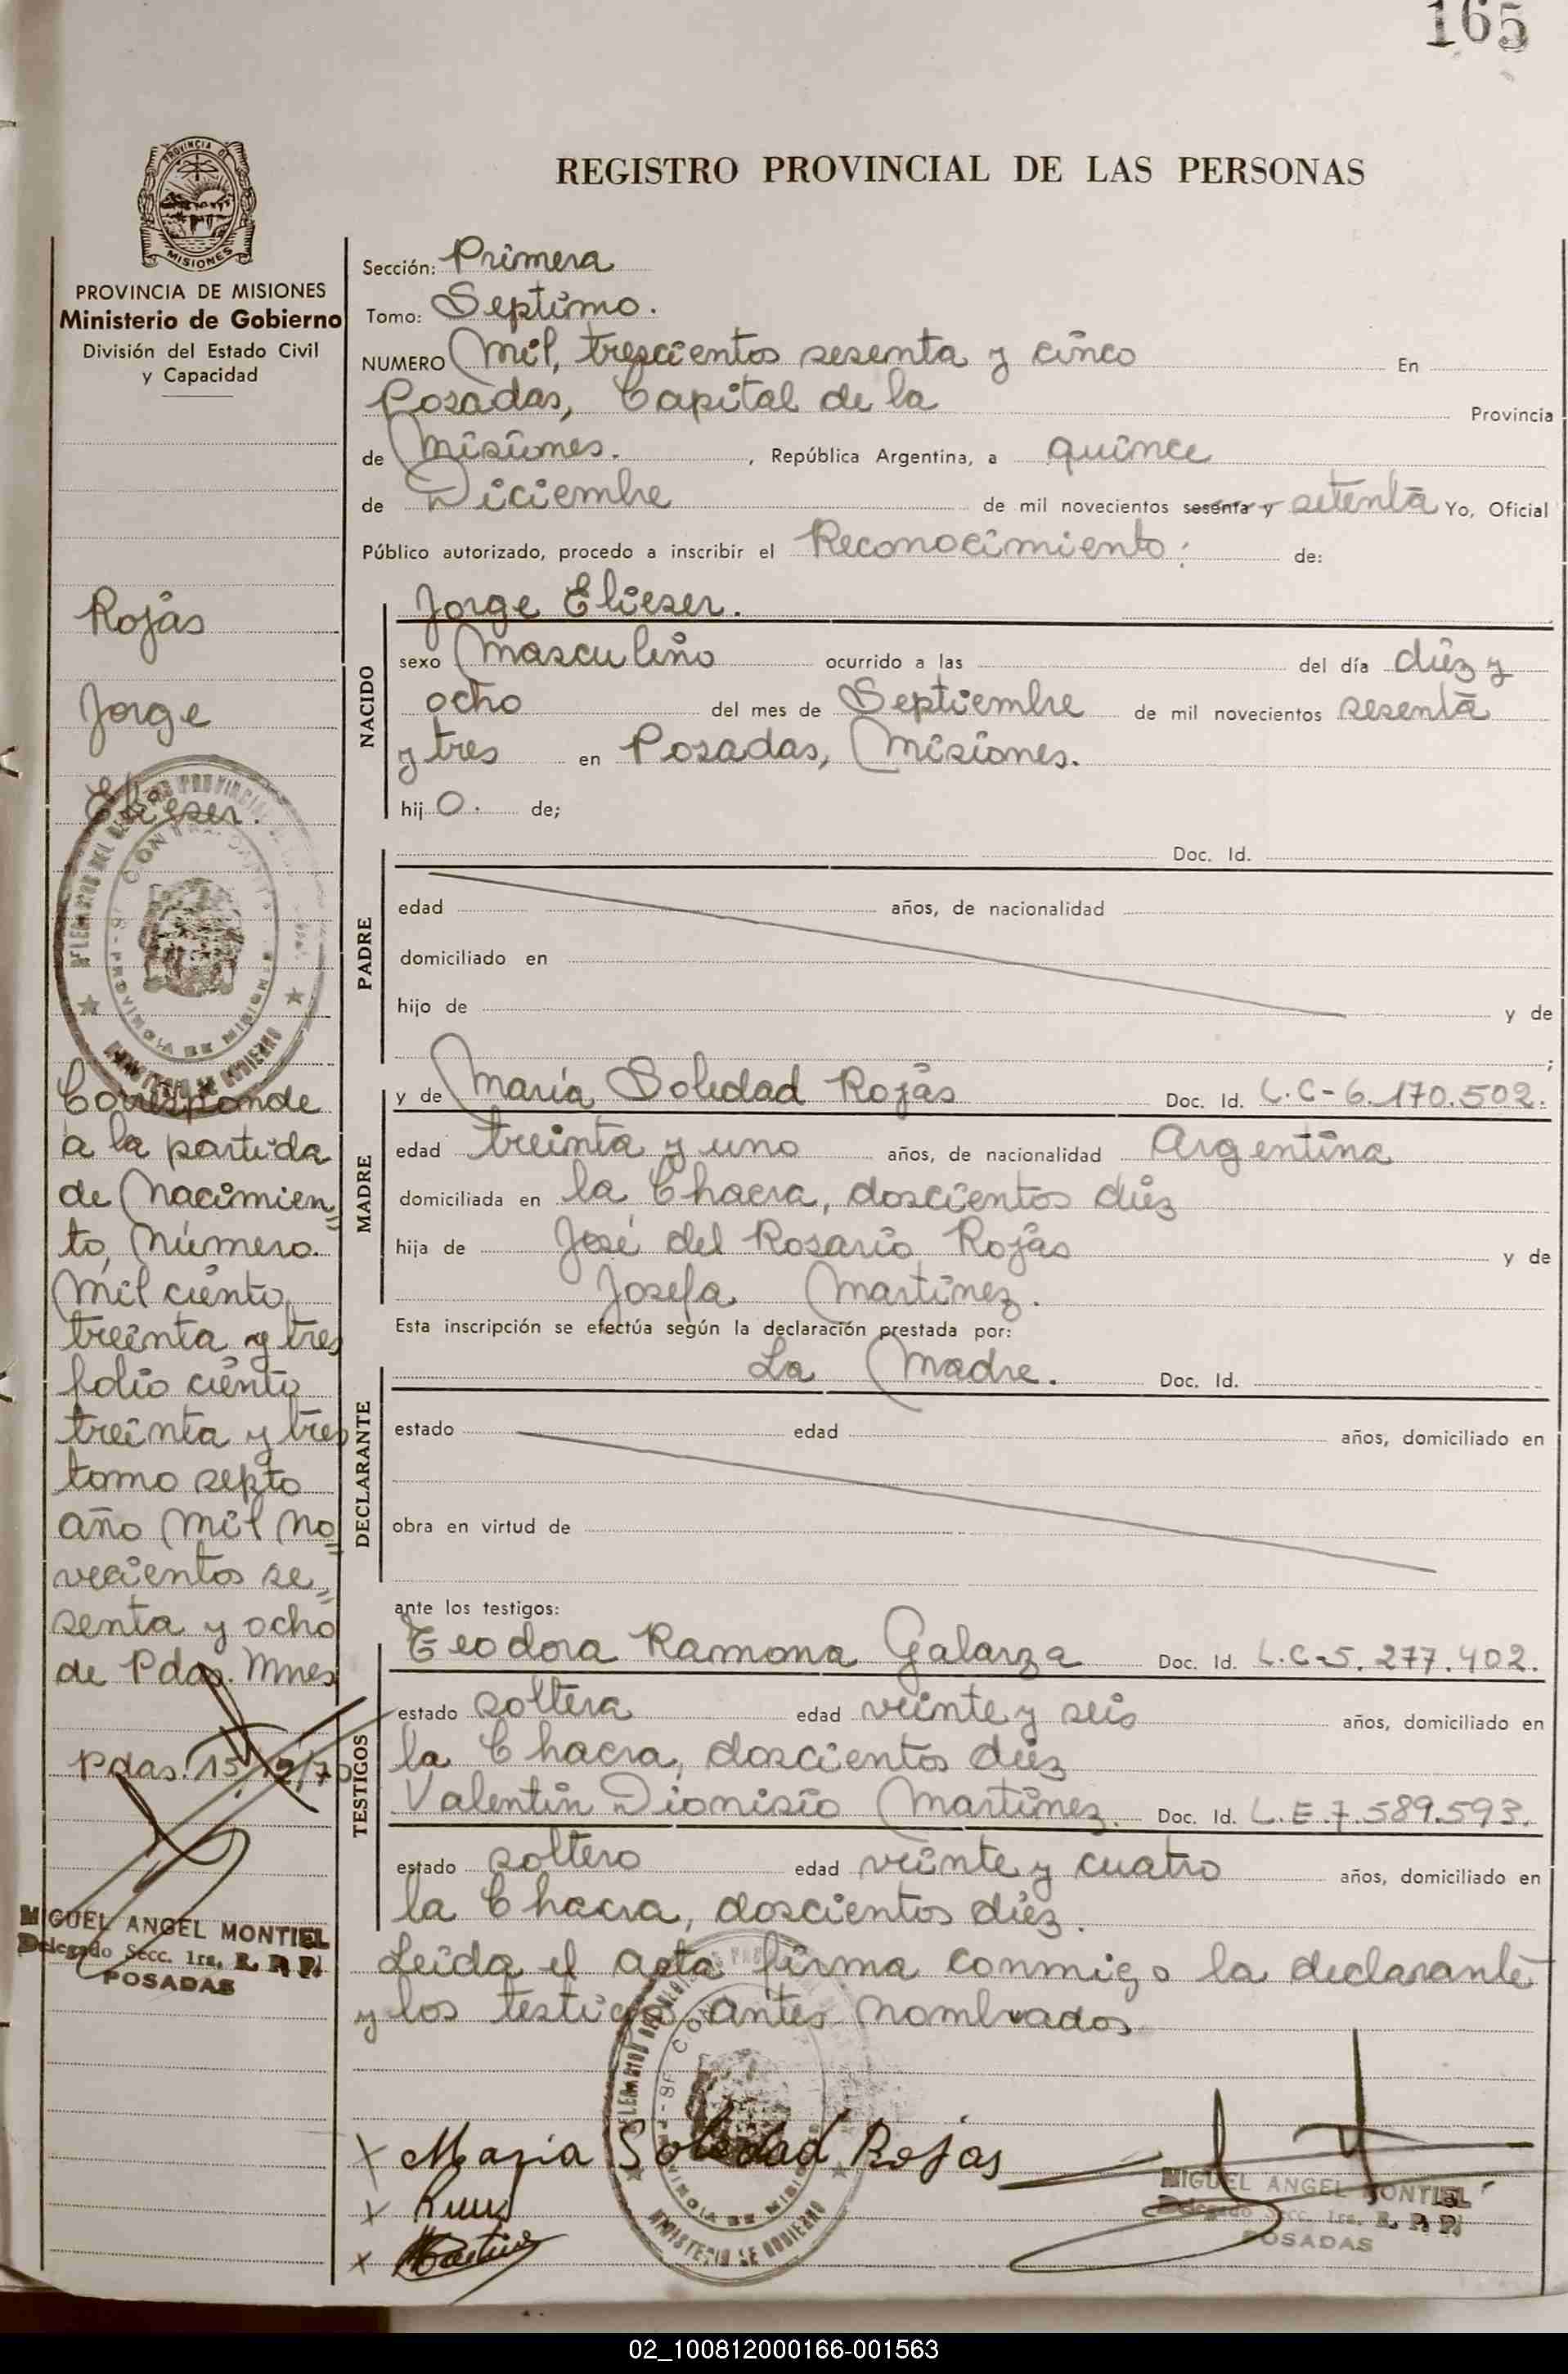 165
REGISTRO PROVINCIAL DE LAS PERSONAS
PROVINCIA DE MISIONES
Ministerio de Gobierno
División del Estado Civil
y Capacidad
Rojas
Jorge
Elieser.
Corresponde
a la partida
de Nacimien=
to, Número
mil ciento
treinta y tres
folio ciento
treinta y tres
tomo septo
año mil no=
vecientos se=
senta y ocho
de Pdas. Mnes
Pdas. 15/12/70
MIGUEL ANGEL MONTIEL
Delegado Secc. 1ra. R. P. P.
POSADAS
Sección: Primera
Tomo: Septimo.
NUMERO Mil, trescientos sesenta y cinco En
Posadas, Capital de la Provincia
de Misiones. , República Argentina, a quince
de Diciembre de mil novecientos sesenta y setenta Yo, Oficial
Público autorizado, procedo a inscribir el Reconocimiento: de:
NACIDO
Jorge Elieser.
sexo Masculino ocurrido a las del día diéz y
ocho del mes de Septiembre de mil novecientos sesenta
y tres en Posadas, Misiones.
hij o. de;
PADRE
Doc. Id.
edad años, de nacionalidad
domiciliado en
hijo de y de
;
MADRE
y de María Soledad Rojas Doc. Id. L.C-6.170.502.
edad treinta y uno años, de nacionalidad Argentina
domiciliada en la Chacra, doscientos diéz
hija de José del Rosario Rojas y de
Josefa Martínez.
Esta inscripción se efectúa según la declaración prestada por:
DECLARANTE
La Madre. Doc. Id.
estado edad años, domiciliado en
obra en virtud de
ante los testigos:
TESTIGOS
Teodora Ramona Galarza Doc. Id. L.C-5.277.402.
estado soltera edad veinte y seis años, domiciliado en
la Chacra, doscientos diéz
Valentín Dionisio Martínez. Doc. Id. L.E.7.589.593.
estado soltero edad veinte y cuatro años, domiciliado en
la Chacra, doscientos diéz.
Leida el acta firma conmigo la declarante
y los testigos antes nombrados
x Maria Soledad Rojas
x
x
MIGUEL ANGEL MONTIEL
Delegado Secc. 1ra. R. P. P.
POSADAS
02_100812000166-001563